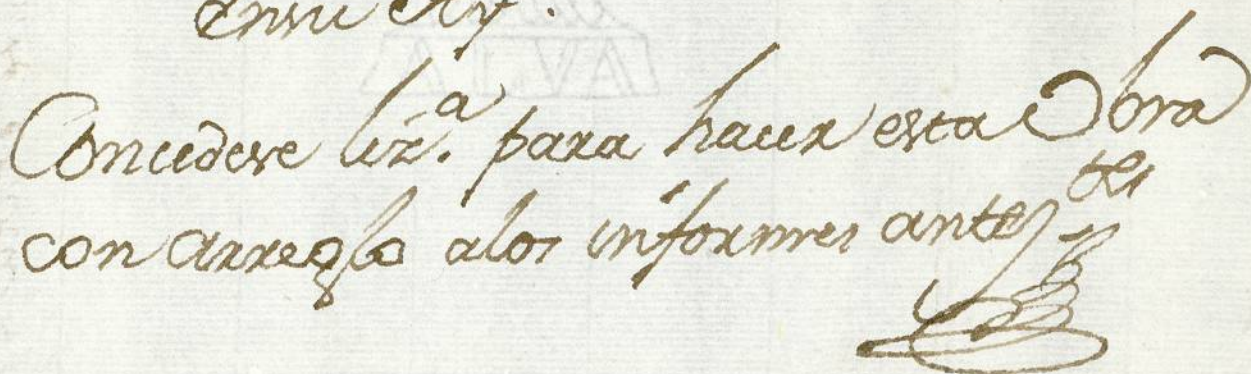 Concedese liz.ª para hacer esta Obra
con arreglo alos informes antez.tes